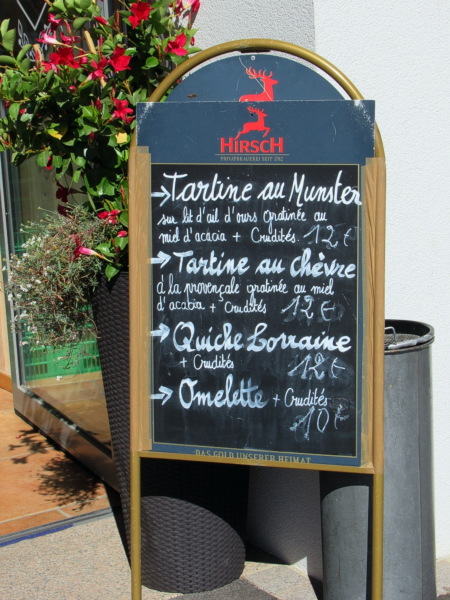 HIRSCH
PRIVATBRAUEREI SEIT 1782
→ Tartine au Munster
sur lit d'ail d'ours Gratinée au
miel d'acacia + Crudités 12€
→ Tartine au chèvre
à la provençale gratinée au miel
d'acabia + Crudités 12€
→ Quiche Lorraine
+ Crudités 12€
→ Omelette + Crudités
10€
DAS GOLD UNSERER HEIMAT